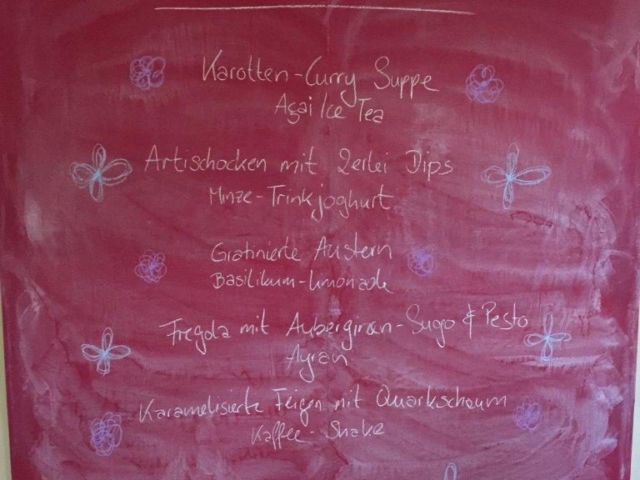 Karotten-Curry Suppe
Açai Ice Tea
Artischocken mit 2erlei Dips
Minze-Trinkjoghurt
Gratinierte Austern
Basilikum-Limonade
Fregola mit Auberginen-Sugo & Pesto
Ayran
Karamelisierte Feigen mit Quarkschaum
Kaffee-Shake